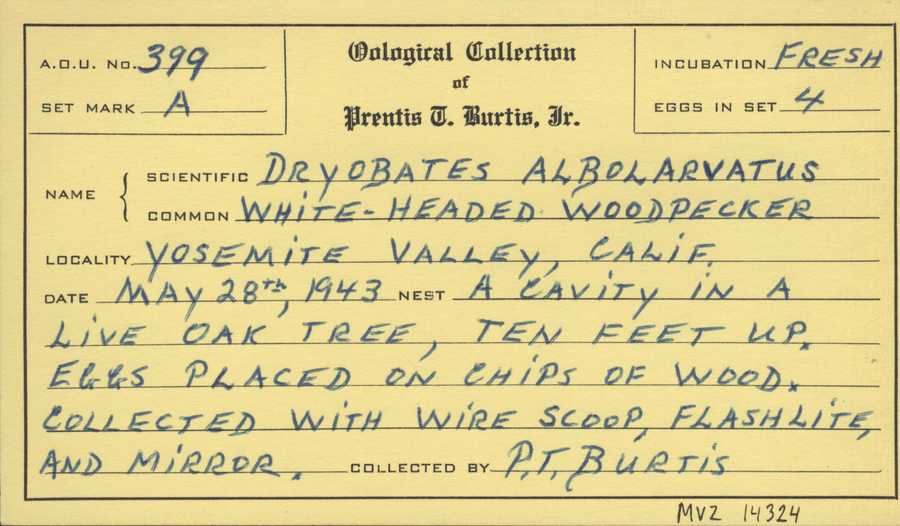 A.O.U. No. 399
SET MARK A
Oological Collection
of
Prentis T. Burtis, Jr.
INCUBATION FRESH
EGGS IN SET 4
NAME { SCIENTIFIC DRYOBATES ALBOLARVATUS
COMMON WHITE-HEADED WOODPECKER
LOCALITY YOSEMITE VALLEY, CALIF.
DATE MAY 28th, 1943 NEST A CAVITY IN A
LIVE OAK TREE, TEN FEET UP.
EGGS PLACED ON CHIPS OF WOOD.
COLLECTED WITH WIRE SCOOP, FLASHLITE,
AND MIRROR. COLLECTED BY P.T. BURTIS
MVZ 14324